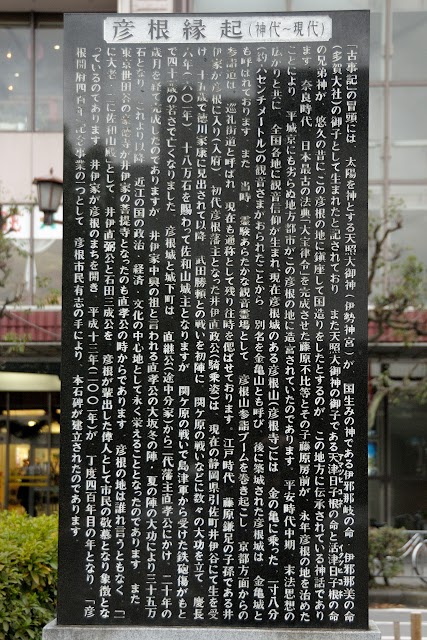 彦根縁起（神代～現代）
「古事記」の冒頭には、太陽を神とする天照大御神（伊勢神宮）が、国生みの神である伊邪那岐の命、伊邪那美の命
（多賀大社）の御子として生まれたと記されており、また天照大御神の御子である天津日子根の命と活津日子根の命
の兄弟神が、悠久の昔にこの彦根の地に鎮座して国造りをしたとするのが、この地方に伝承されている神話であり
ます。奈良時代、日本最古の法典「大宝律令」を完成させた藤原不比等とその子藤原房前が、永年彦根の地を治めた
ことにより、平城京にも劣らぬ地方都市がこの彦根の地に造営されていたのであります。平安時代中期、末法思想の
広がりと共に、全国各地に観音信仰が生まれ、現在彦根城のある彦根山（彦根寺）には、金の亀に乗った一寸八分
（約八センチメートル）の観音さまがおられたことから、別名を金亀山とも呼び、後に築城された彦根城は、金亀城と
も呼ばれております。また、当時、霊験あらたかな観音霊場として、彦根山参詣ブームを巻き起こし、京都方面からの
参詣道は、巡礼街道と呼ばれ、現在も通称として残り往時を偲ばせております。江戸時代、藤原鎌足の子孫である井
伊家が彦根に入り（入府）、初代彦根藩主となった井伊直政公（騎乗姿）は、現在の静岡県引佐町井伊谷にて生を受
け、十五歳で徳川家康に見出されて以降、武田勝頼との戦いを初陣に、関ケ原の戦いなどに数々の大功を立て、慶長
六年（一六〇一年）、十八万石を賜わって佐和山城主となりますが、関ケ原の戦いで島津軍から受けた鉄砲傷がもと
で四十二歳の若さで亡くなりました。彦根城と城下町は、直継公（途中分家）から二代藩主直孝公にかけ、二十年の
歳月を経て完成したのでありますが、井伊家中興の祖と言われる直孝公の大坂冬の陣・夏の陣の大功により三十五万
石となり、これより以降、近江の国の政治・経済・文化の中心地として永く栄えることとなったのであります。また
東京世田谷の豪徳寺が井伊家の菩提寺となったのも直孝公の時からであります。彦根の地は誰れ言うともなく、「一
に大老・二に佐和山殿」として、井伊直弼公と石田三成公を、彦根が輩出した偉人として市民の敬慕となり象徴とな
っているのであります。井伊家が彦根のまちを開き、平成十三年（二〇〇一年）が、丁度四百年目の年となり、「彦
根開府四百年」記念事業の一つとして、彦根市民有志の手により、本石碑が建立されたのであります。